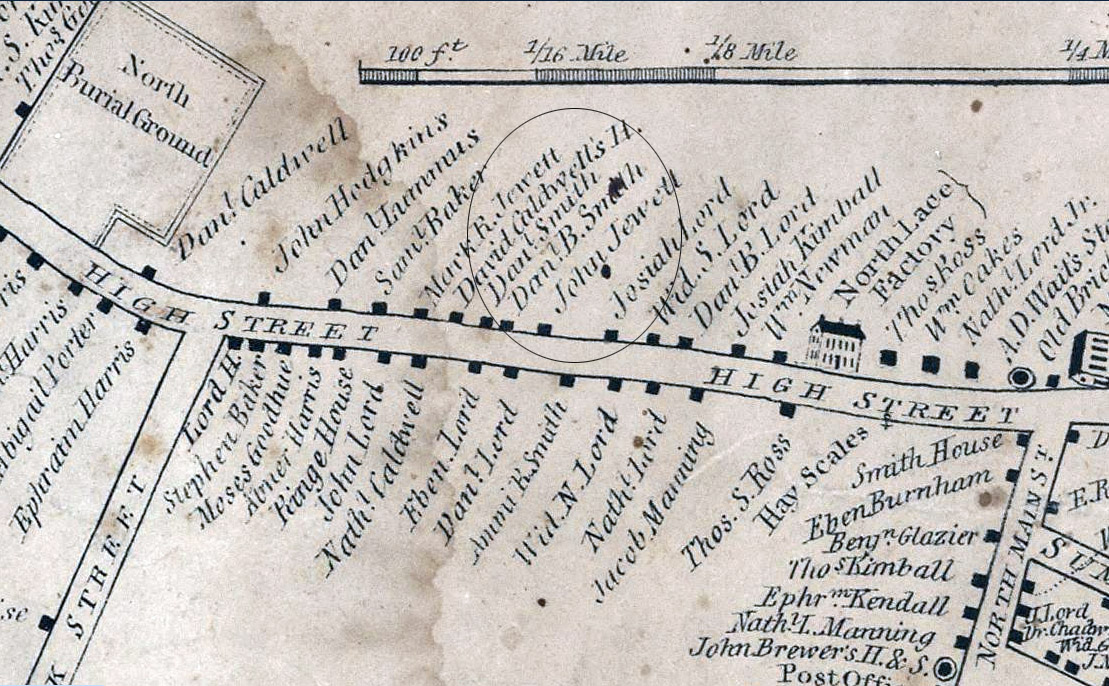 S. Ki
Thos Go
North
Burial Ground
100 f.t
1/16 Mile
1/8 Mile
1/4 M
Dan.l Caldwell
John Hodgkins
Dan.l Lummus
Sam.l Baker
Mark R. Jewett
David Caldwell's H.
Dan.l Smith
Dan.l B. Smith
John Jewett
Josiah Lord
Wid. S. Lord
Dan.l B. Lord
Josiah Kimball
Wm Newman
North Lace
Factory
Thos Ross
Wm Oakes
Nath.l Lord Jr.
A.D. Waits Sto
Old Bric
HIGH STREET
HIGH STREET
ris
Harris
Abigail Porter
Ephraim Harris
Lord H.
Stephen Baker
Moses Goodhue
Abner Harris
Range House
John Lord
Nath.l Caldwell
Eben. Lord
Dan.l Lord
Ammi R. Smith
Wid. N. Lord
Nath.l Lord
Jacob Manning
Thos. S. Ross
Hay Scales
Smith House
Eben Burnham
Benj.n Glazier
Thos Kimball
Ephr.m Kendall
Nath.l L. Manning
John Brewer's H. & S.
Post Offi
K STREET
NORTH MAIN ST.
D
E.R
W
SUM
J. Lord
Dr. Chadw
Wid G
J.M
se